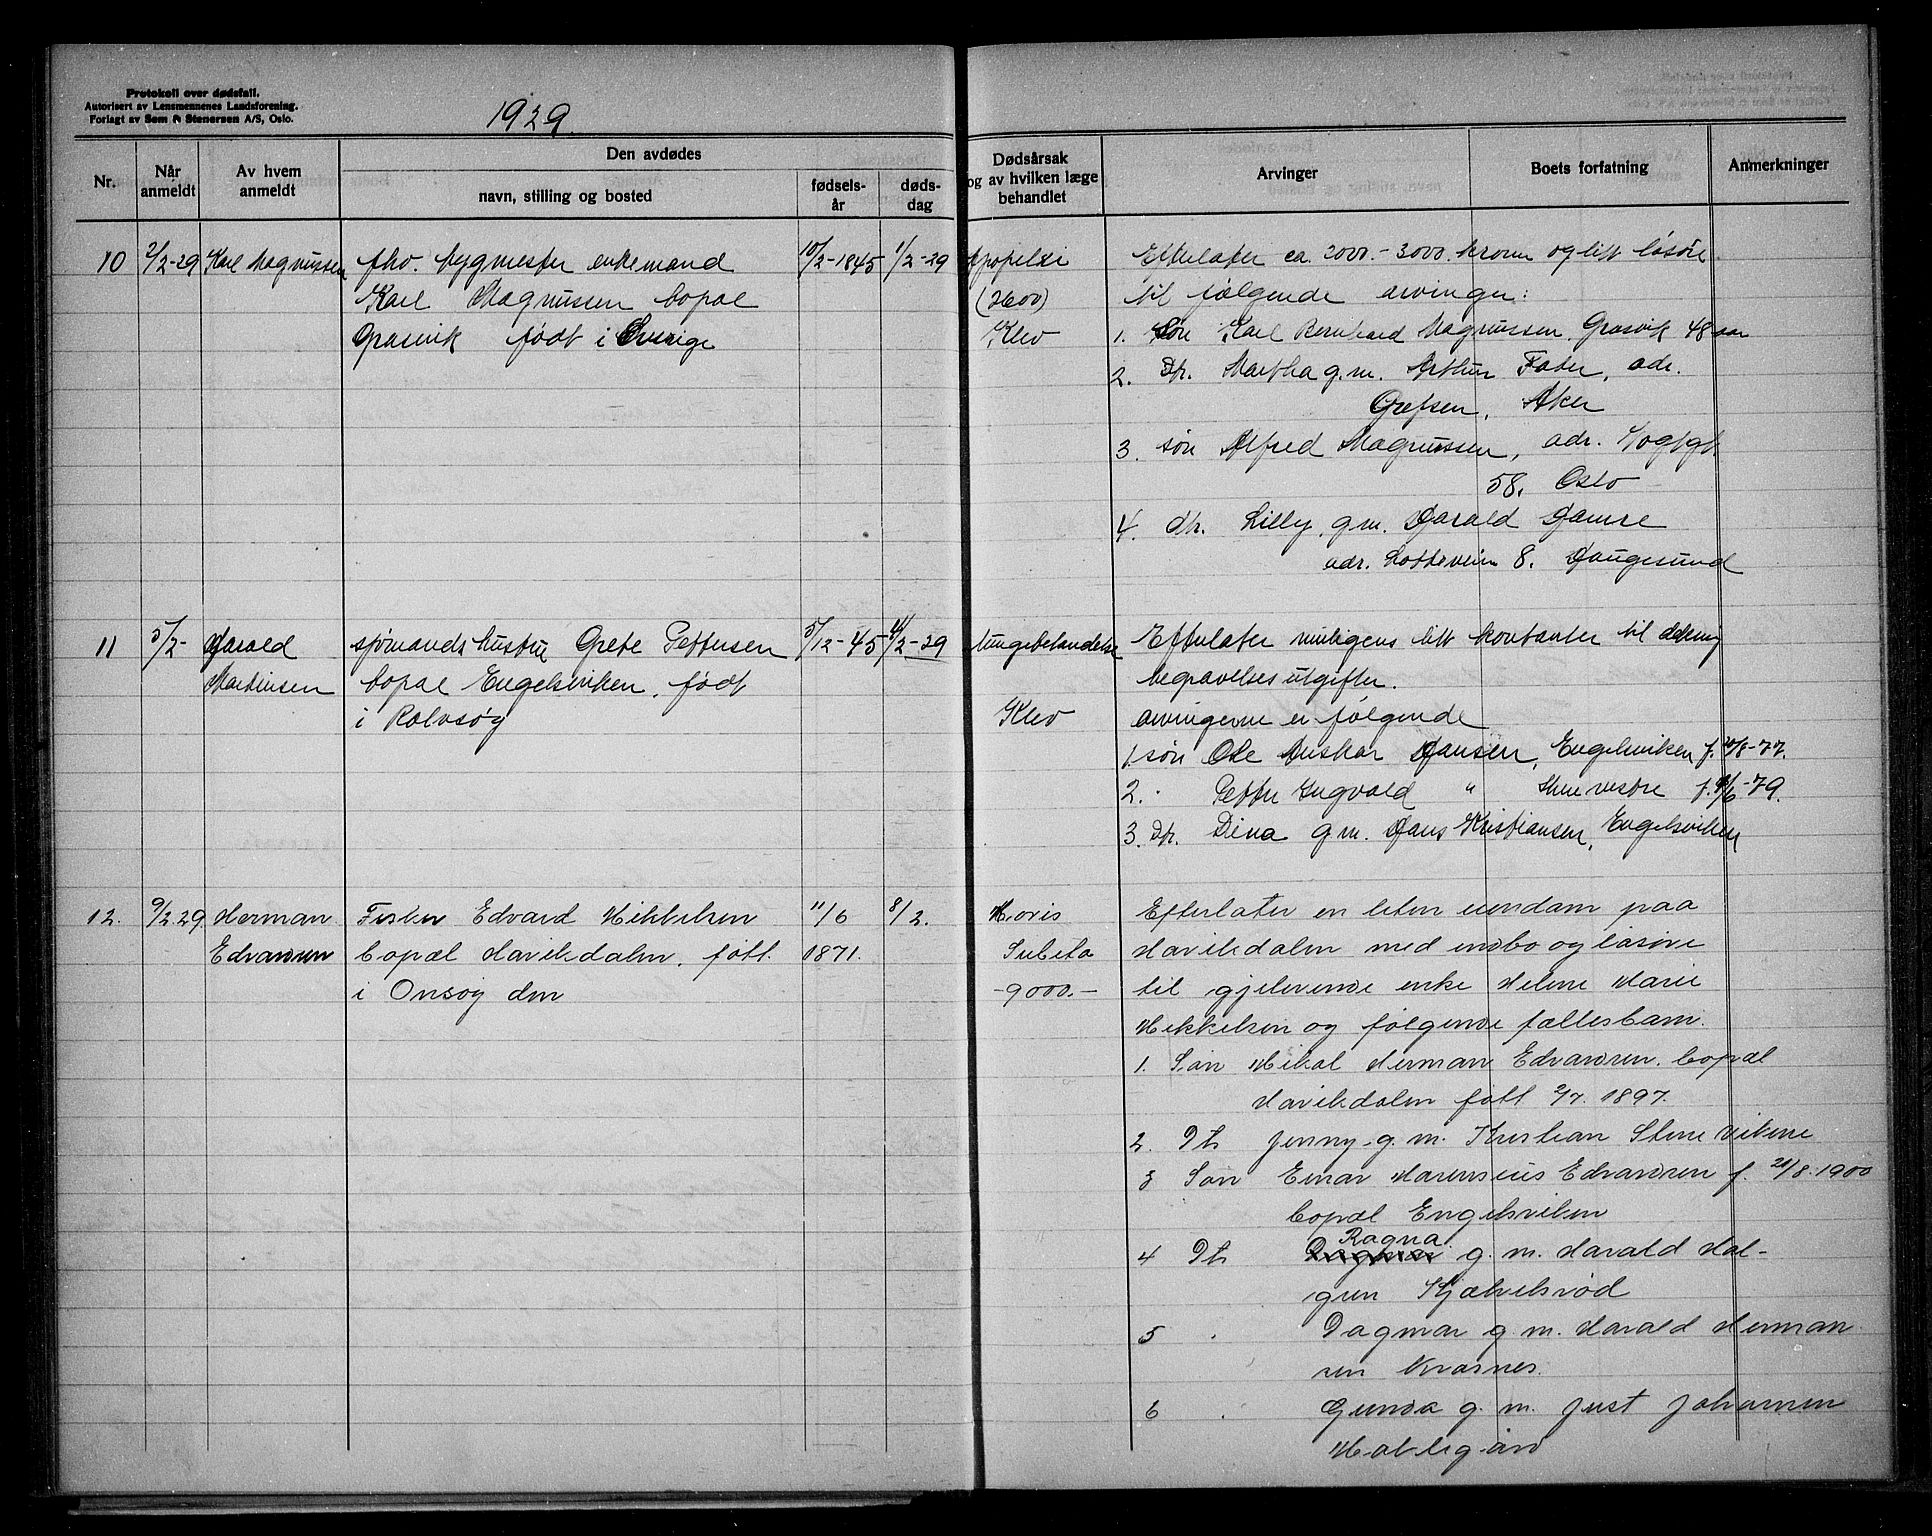 Protokoll over dødsfall.
Autorisert av Lensmennenes Landsforening.
Forlagt av Sem & Stenersen A/S, Oslo.
1929.
Nr.
Når anmeldt
Av hvem anmeldt
Den avdødes
navn, stilling og bosted
fødsels-
år
døds-
dag
Dødsårsak
og av hvilken læge
behandlet
Arvinger
Boets forfatning
Anmerkninger
10 2/2-29 Karl Magnussen fhv. bygmester enkemand 10/2-1845 1/2-29
Karl Magnussen bopæl
Græsvik født i Sverige
Apopleksi
(2600)
Klev
Efterlater ca. 2000.-3000. kroner og litt løsøre
til følgende arvinger:
1. Søn Karl Bernhard Magnussen, Græsvik 48 aar
2. Dt. Martha g.m. Arthur Foder, adr.
Grefsen, Aker
3. søn Alfred Magnussen, adr. Vogtgt.
58. Oslo
4. dt. Lilly, g.m. Harald Hamre
adr. Lotheveien 8. Haugesund
11 5/2- Harald sjømands hustru Grete Pettersen 5/12-45 4/2-29
Martinsen bopæl Engelsviken, født
i Rolvsøy
lungebetændelse
Klev
Efterlater muligens litt kontanter til dekning
begravelsesutgifter.
arvingerne er følgende
1. søn Ole Anskar Hansen, Engelsviken f. 20/8-77.
2. " Petter Ingvald " Slevik vestre f. 9/6-79.
3. Dt. Dina g.m. Hans Kristiansen, Engelsviken
12. 9/2 29. Herman Fisker Edvard Mikkelsen 11/6 8/2.
Edvardsen bopæl Slevikdalen, født 1871.
i Onsøy den
Moris
Subita
-9000.-
Efterlater en liten eiendom paa
Slevikdalen med indbo og løsøre
til gjenlevende enke Helene Marie
Mikkelsen og følgende fællesbarn.
1. Søn Mikal Herman Edvardsen. bopæl
Slevikdalen født 2/7. 1897.
2. Dt. Jenny g.m. Kristian Stene Vikene
3 Søn Einar Marensius Edvardsen f. 21/8.1900
bopæl Engelsviken
Ragna
4 Dt. Dagmar g.m. Harald Hol-
gren Kjælvilsrød
5 " Dagmar g.m. Harald Herman
sen Kraknes.
6 " Gunda g.m. Just Johansen
Mobligård